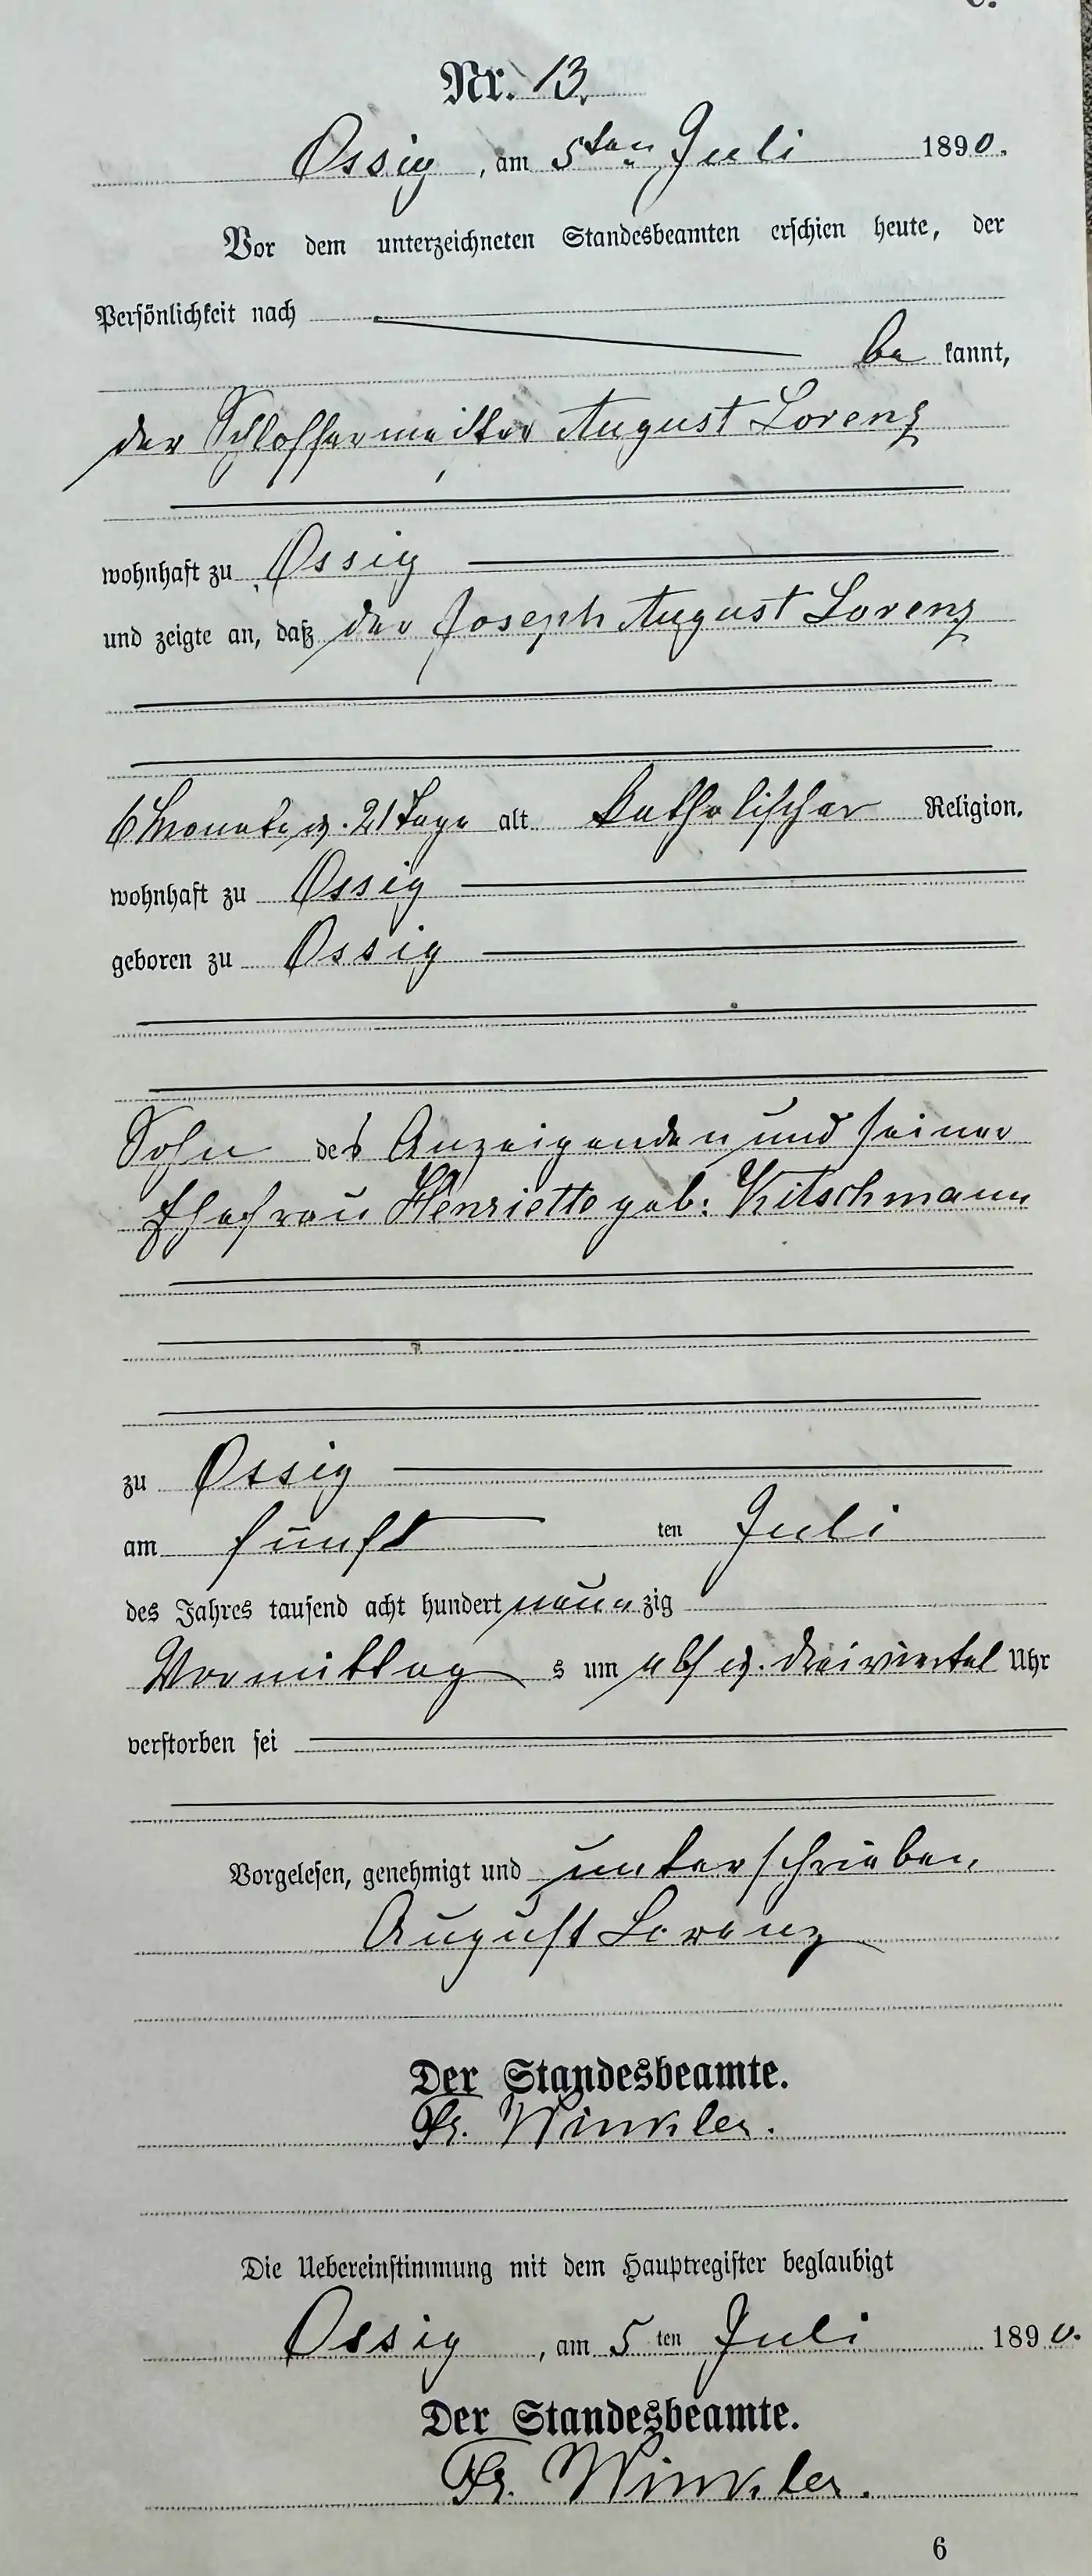 Nr. 13.
Ossig, am 5ten Juli 1890.
Vor dem unterzeichneten Standesbeamten erschien heute, der
Persönlichkeit nach
be kannt,
der Schlossermeister August Lorenz
wohnhaft zu Ossig
und zeigte an, daß der Joseph August Lorenz
6 Monate u. 21 Tage alt katholischer Religion,
wohnhaft zu Ossig
geboren zu Ossig
Sohn des Anzeigenden und seiner
Ehefrau Henriette geb: Kitschmann
zu Ossig
am fünft ten Juli
des Jahres tausend acht hundert neun zig
Vormittag s um elf u. dreiviertel Uhr
verstorben sei
Vorgelesen, genehmigt und unterschrieben
August Lorenz
Der Standesbeamte.
Fr. Winkler.
Die Uebereinstimmung mit dem Hauptregister beglaubigt
Ossig, am 5 ten Juli 1890.
Der Standesbeamte.
Fr. Winkler.
6